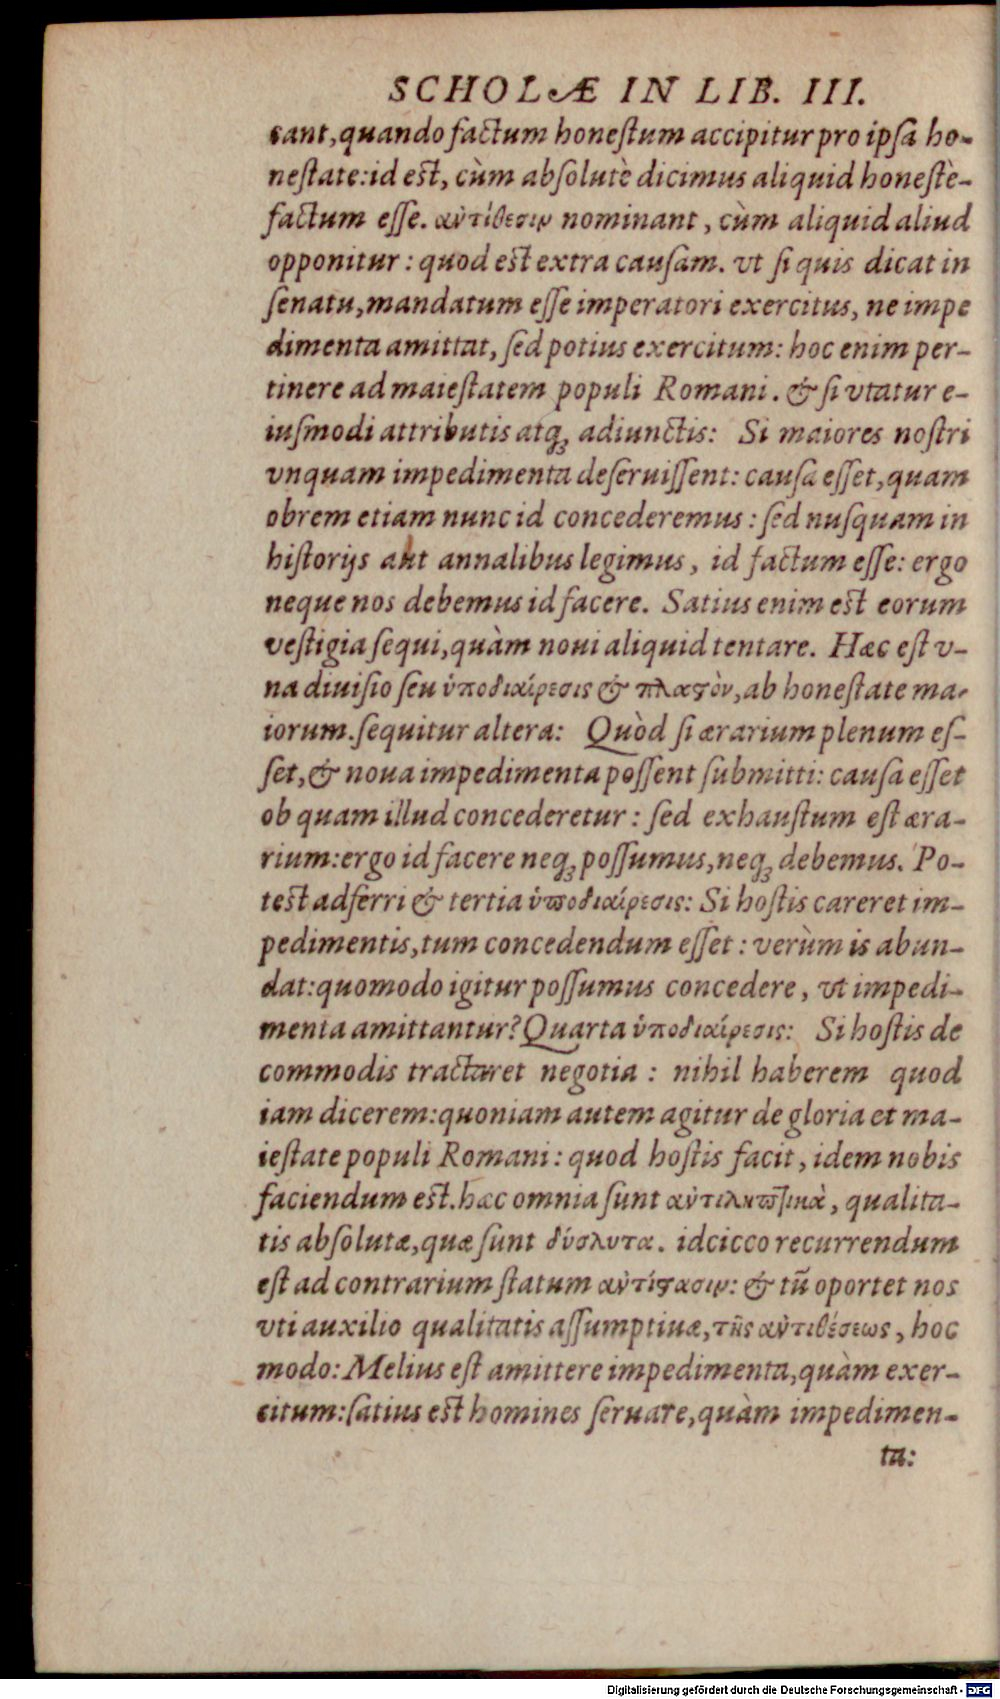 SCHOLÆ IN LIB. III.
cant, quando factum honestum accipitur pro ipsa ho-
nestate: id est, cùm absolutè dicimus aliquid honestè-
factum esse. ἀντίθεσιν nominant, cùm aliquid aliud
opponitur: quod est extra causam. vt si quis dicat in
senatu, mandatum esse imperatori exercitus, ne impe
dimenta amittat, sed potius exercitum: hoc enim per-
tinere ad maiestatem populi Romani. & si vtatur e-
iusmodi attributis atq; adiunctis: Si maiores nostri
vnquam impedimenta deseruissent: causa esset, quam
obrem etiam nunc id concederemus: sed nusquam in
historijs aut annalibus legimus, id factum esse: ergo
neque nos debemus id facere. Satius enim est eorum
vestigia sequi, quàm noui aliquid tentare. Hæc est v-
na diuisio seu ὑποδιαίρεσις & πλαστὸν, ab honestate ma-
iorum. sequitur altera: Quòd si ærarium plenum es-
set, & noua impedimenta possent submitti: causa esset
ob quam illud concederetur: sed exhaustum est æra-
rium: ergo id facere neq; possumus, neq; debemus. Po-
test adferri & tertia ὑποδιαίρεσις: Si hostis careret im-
pedimentis, tum concedendum esset: verùm is abun-
dat: quomodo igitur possumus concedere, vt impedi-
menta amittantur? Quarta ὑποδιαίρεσις: Si hostis de
commodis tractaret negotia: nihil haberem quod
iam dicerem: quoniam autem agitur de gloria et ma-
iestate populi Romani: quod hostis facit, idem nobis
faciendum est. hæc omnia sunt ἀντιληπτικὰ, qualita-
tis absolutæ, quæ sunt δύσλυτα. idcicco recurrendum
est ad contrarium statum ἀντίστασιν: & tū oportet nos
vti auxilio qualitatis assumptiuæ, τῆς ἀντιθέσεως, hoc
modo: Melius est amittere impedimenta, quàm exer-
citum: satius est homines seruare, quàm impedimen-
ta:
Digitalisierung gefördert durch die Deutsche Forschungsgemeinschaft - DFG